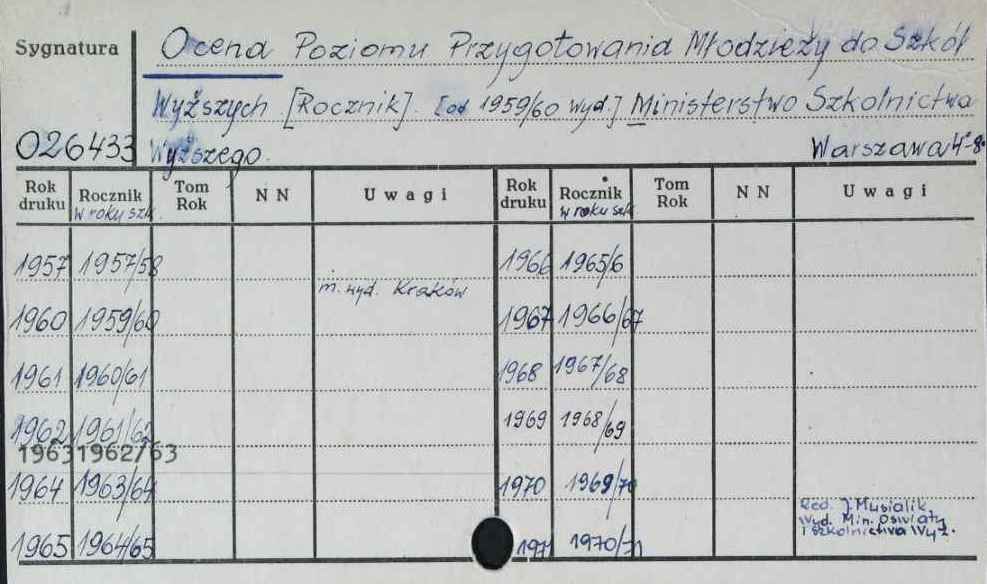 Sygnatura Ocena Poziomu Przygotowania Młodzieży do Szkół
Wyższych [Rocznik]. [od 1959/60 wyd.] Ministerstwo Szkolnictwa
026433 Wyższego. Warszawa 4°-8°
Rok druku Rocznik w roku szk. Tom Rok N N Uwagi Rok druku Rocznik w roku szk. Tom Rok N N Uwagi
1957 1957/58 1966 1965/6
m. wyd. Kraków
1960 1959/60 1967 1966/67
1961 1960/61 1968 1967/68
1962 1961/62 1969 1968/69
1963 1962/63
1964 1963/64 1970 1969/70
Red. J. Musialik,
Wyd. Min. Oświaty
i Szkolnictwa Wyż.
1965 1964/65 1971 1970/71